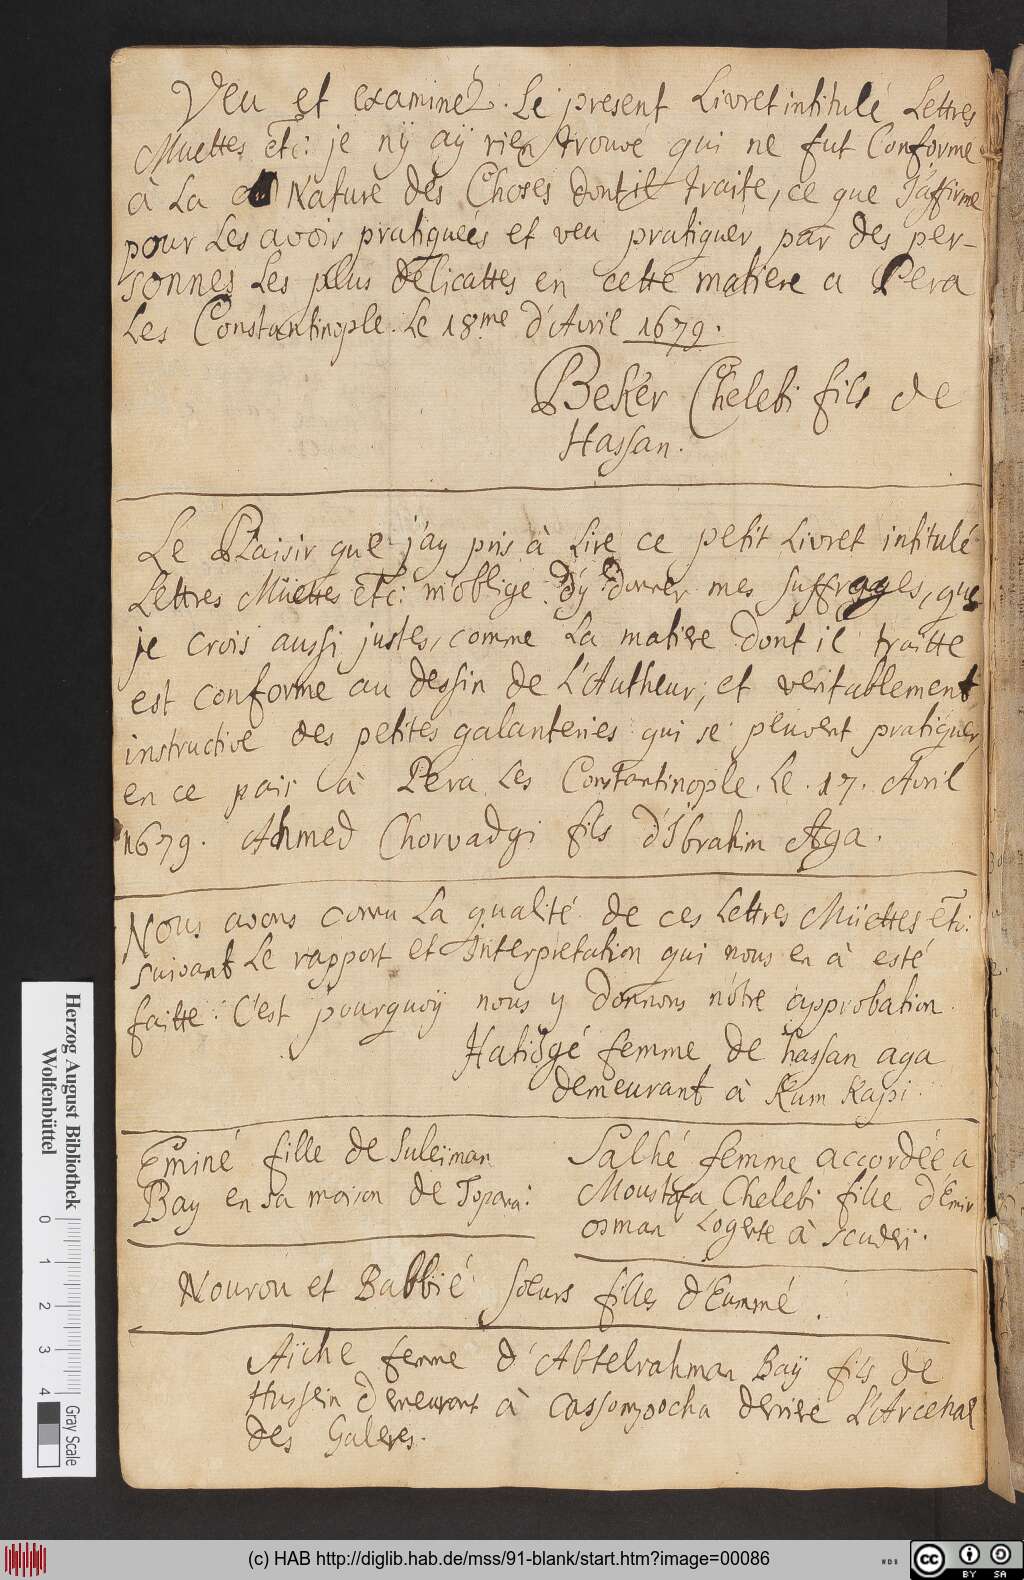 Veu et examinéz. Le present Livret intitulé Lettres
Muettes etc: je nÿ aÿ rien trouvé qui ne fut Conforme
à La Nature des Choses dont il traite, ce que J'affirme
pour Les avoir pratiquées et veu pratiquér par des per-
sonnes Les plus délicattes en cette matiere a Pera
Les Constantinople. Le 18.me d'Avril 1679.
Bekér Chelebi fils de
Hassan.
Le Plaisir que j'ay pris à Lire ce petit Livret intitulé
Lettres Müettes etc: m'oblige d'ÿ donner mes suffrages, que
je crois aussi justes, comme La matiere dont il traitte
est conforme au dessin de L'Autheur, et veritablement
instructive des petites galanteries qui se peuvent pratiquer
en ce païs à Pera Les Constantinople. Le. 17. Avril
1679. Ahmed Chorvadgi fils d'Ibrahim Aga.
Nous avons connu La qualité de ces Lettres Müettes etc:
suivant Le rapport et Interpretation qui nous en à esté
faitte. C'est pourquoÿ nous y donnons nôtre approbation.
Hatidgé femme de hassan aga
demeurant à Kum Kapi.
Eminé fille de Suleiman
Bay en sa maison de Topana:
Salhé femme accordée a
Moustafa Chelebi fille d'Emir
osman Logente à Scuderi.
Nourou et Babbié Soeurs filles d'Eummé.
Aïche femme d'Abtelrahman Baÿ fils de
Hussein demeurant à Cassompoocha derriere L'Arcenal
des Galeres.
Herzog August Bibliothek
Wolfenbüttel
0 1 2 3 4
Gray Scale
(c) HAB http://diglib.hab.de/mss/91-blank/start.htm?image=00086
WDB
cc BY SA